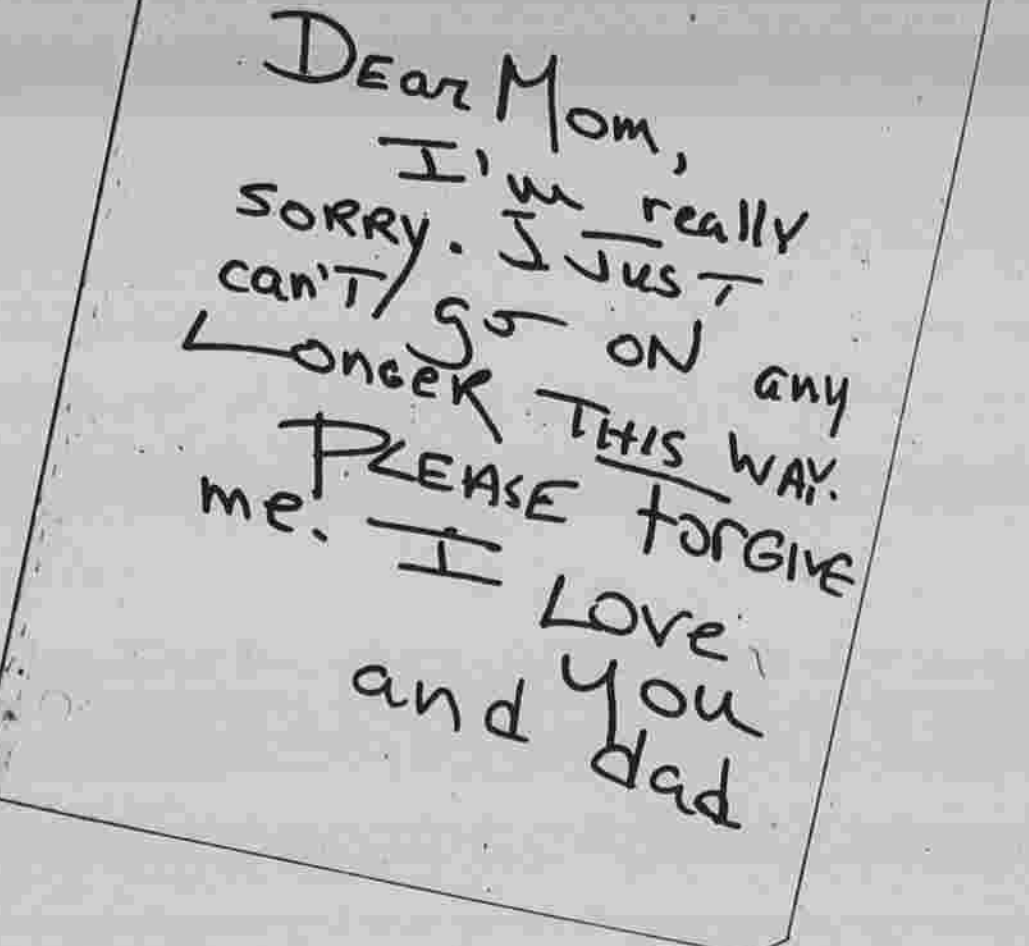 DEar Mom,
I'm really
SORRY. I JusT
can'T go ON any
LonGER THIS WAY.
PLEASE forGIVE
me. I LOVe
you
and dad